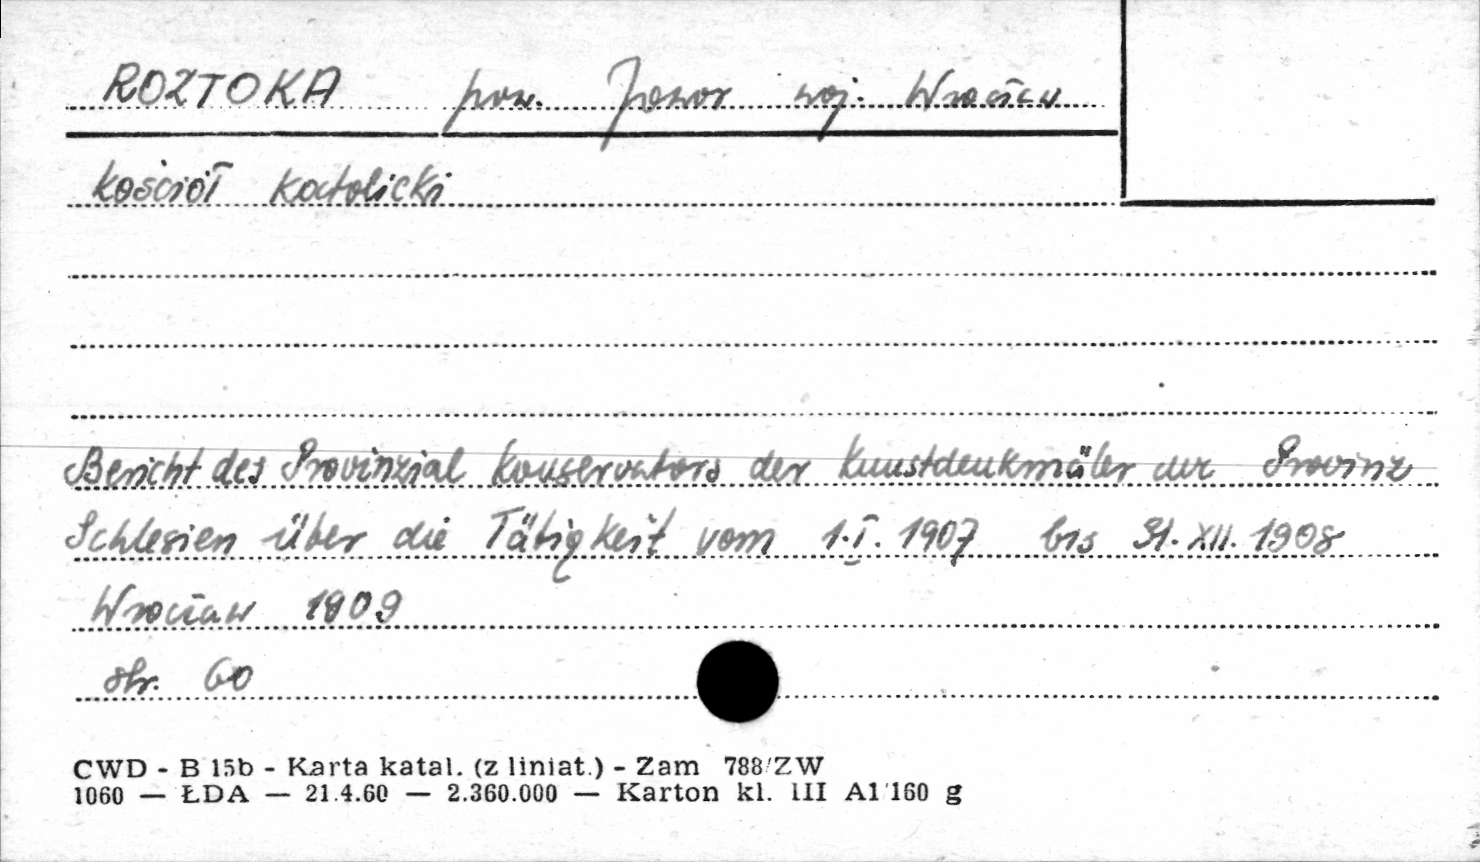 ROZTOKA pow. Jawor woj. Wrocław
kościół katolicki
Bericht des Provinzial Konservators der Kunstdenkmäler der Provinz
Schlesien über die Tätigkeit vom 1.I.1907 bis 31.XII.1908
Wrocław 1909
str. 60
CWD - B 15b - Karta katal. (z liniat.) - Zam 788/ZW
1060 — ŁDA — 21.4.60 — 2.360.000 — Karton kl. III A1/160 g